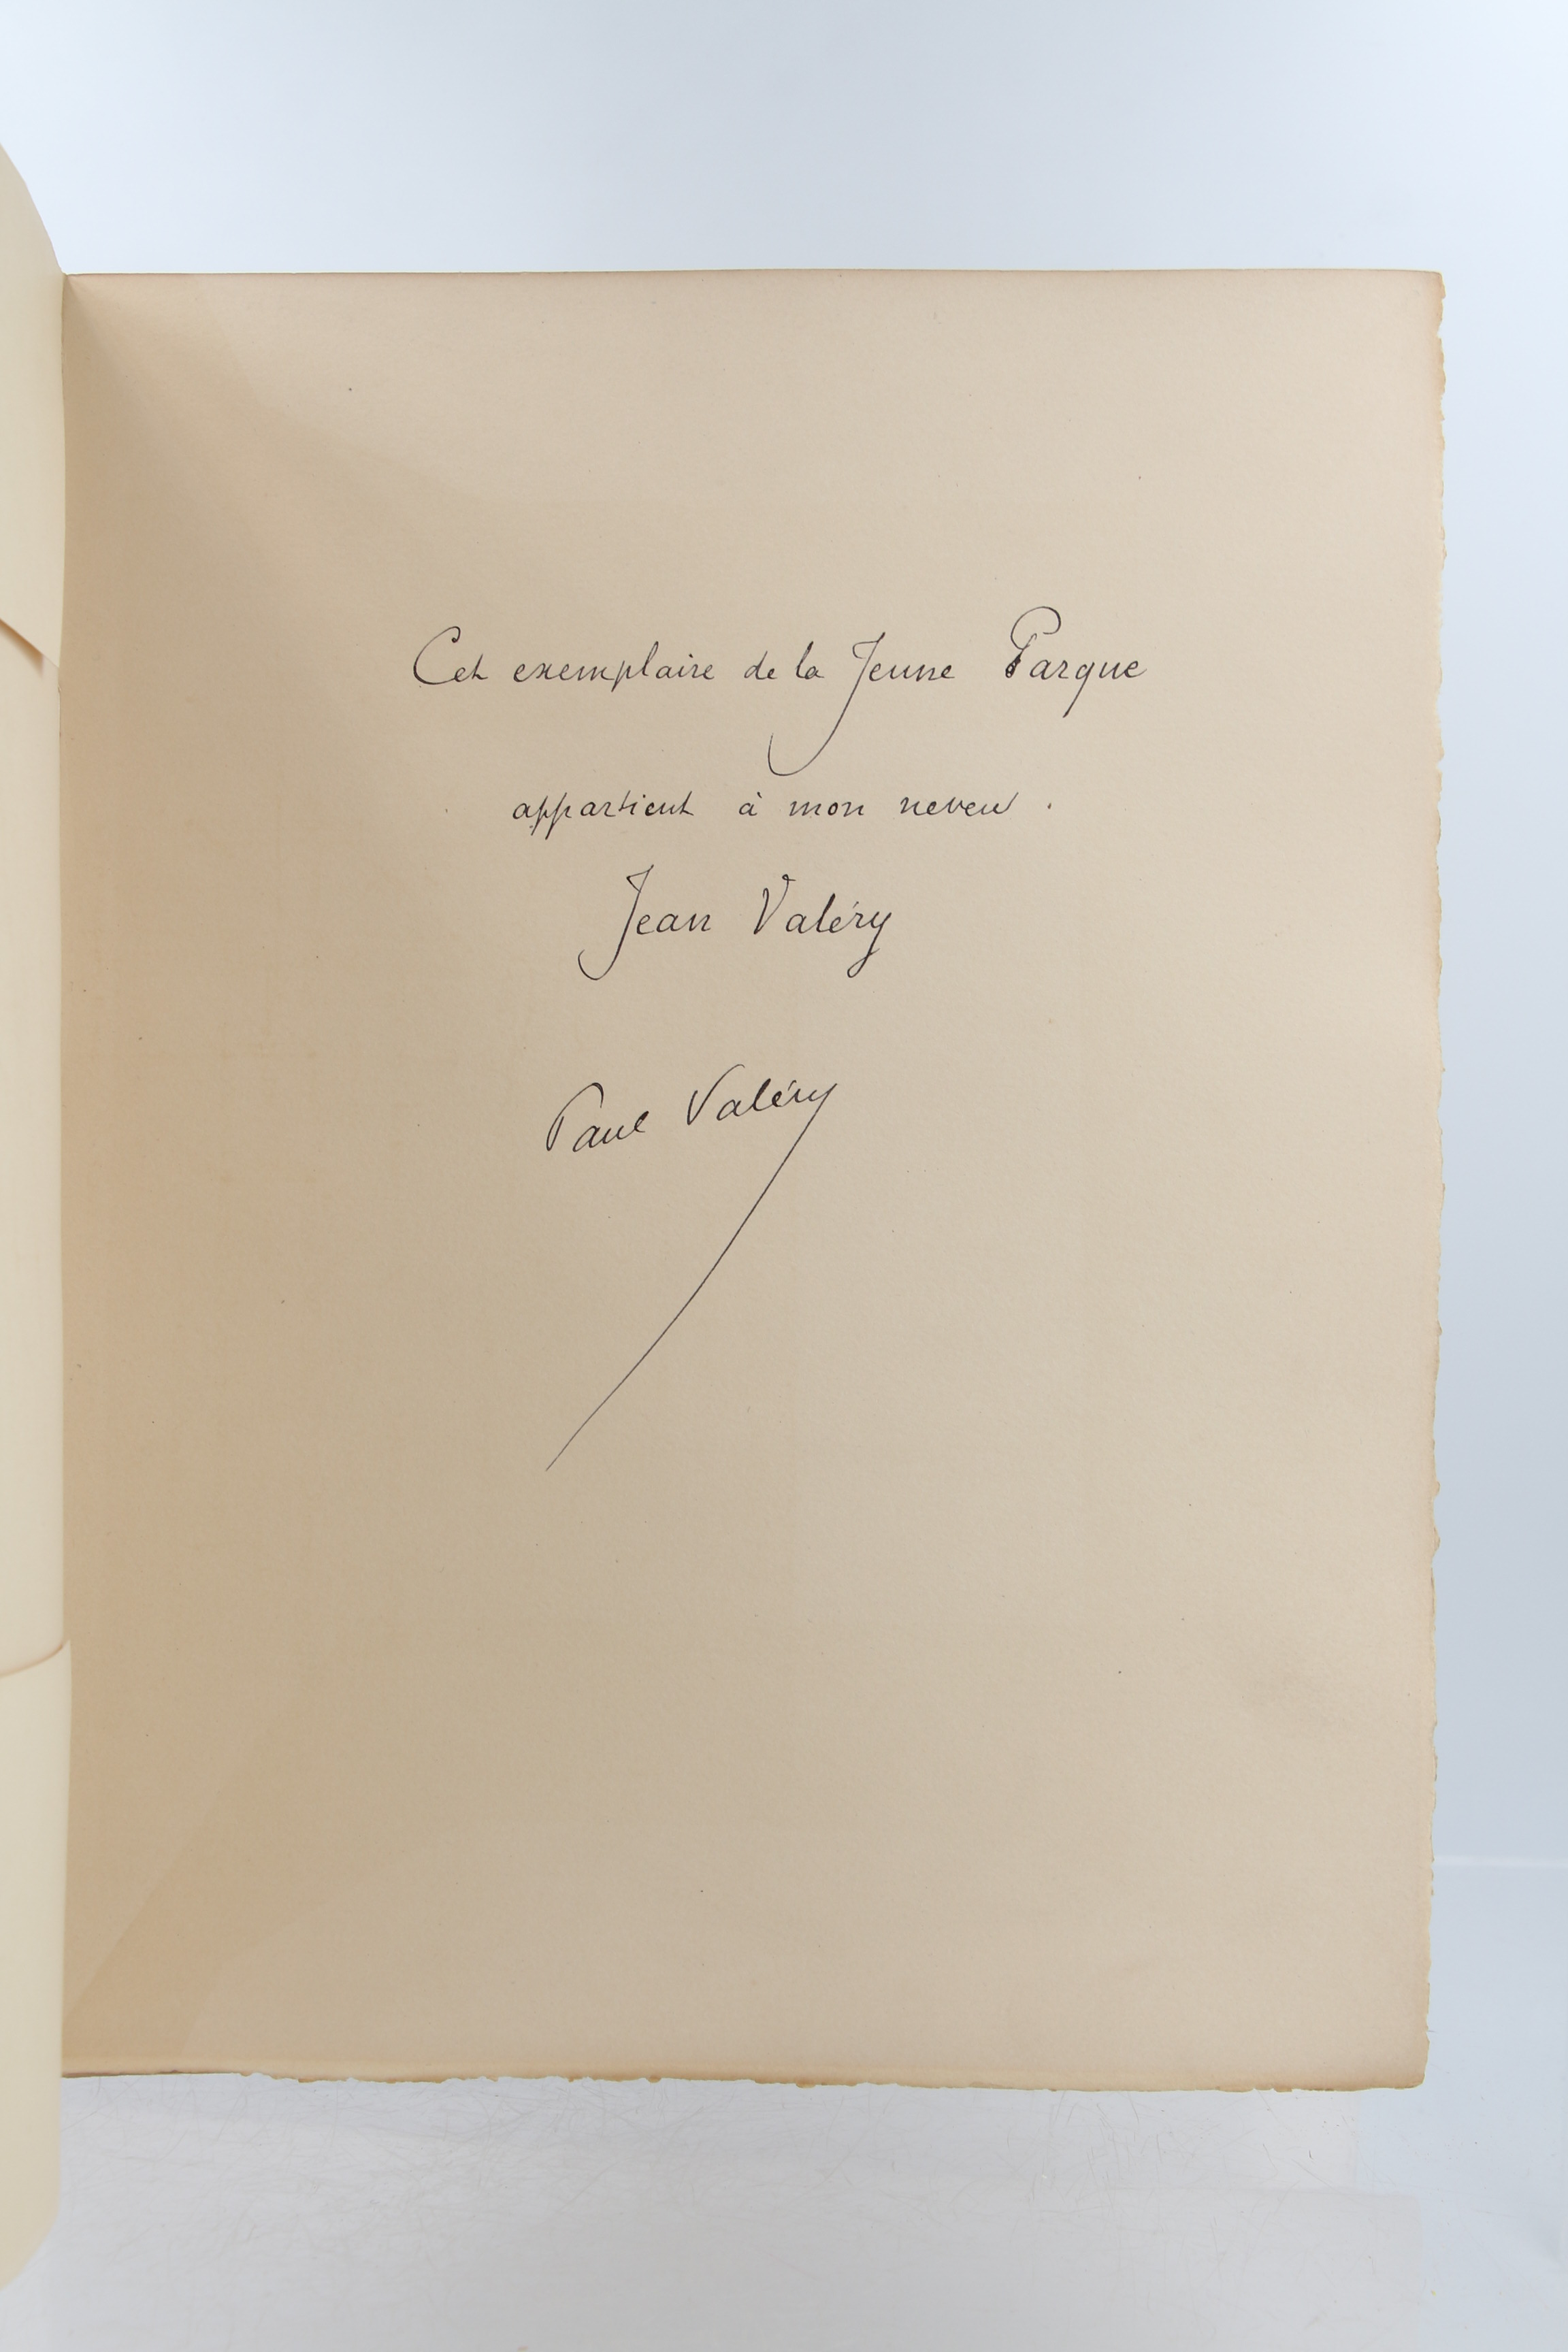 Cet exemplaire de la Jeune Parque
appartient à mon neveu.
Jean Valéry
Paul Valéry